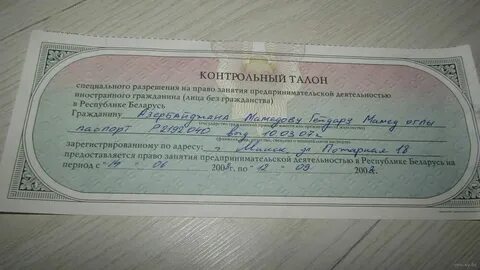 КОНТРОЛЬНЫЙ ТАЛОН
специального разрешения на право занятия предпринимательской деятельностью
иностранного гражданина (лица без гражданства)
в Республике Беларусь
Гражданину Азербайджана Мамедову Гейдару Мамед оглы
паспорт Р2192040 выд 10.03.07г
зарегистрированному по адресу: г Минск ул Пожарная 18
предоставляется право занятия предпринимательской деятельностью в Республике Беларусь на
период с 19 06 2008 г. по 12 09 2008 г.